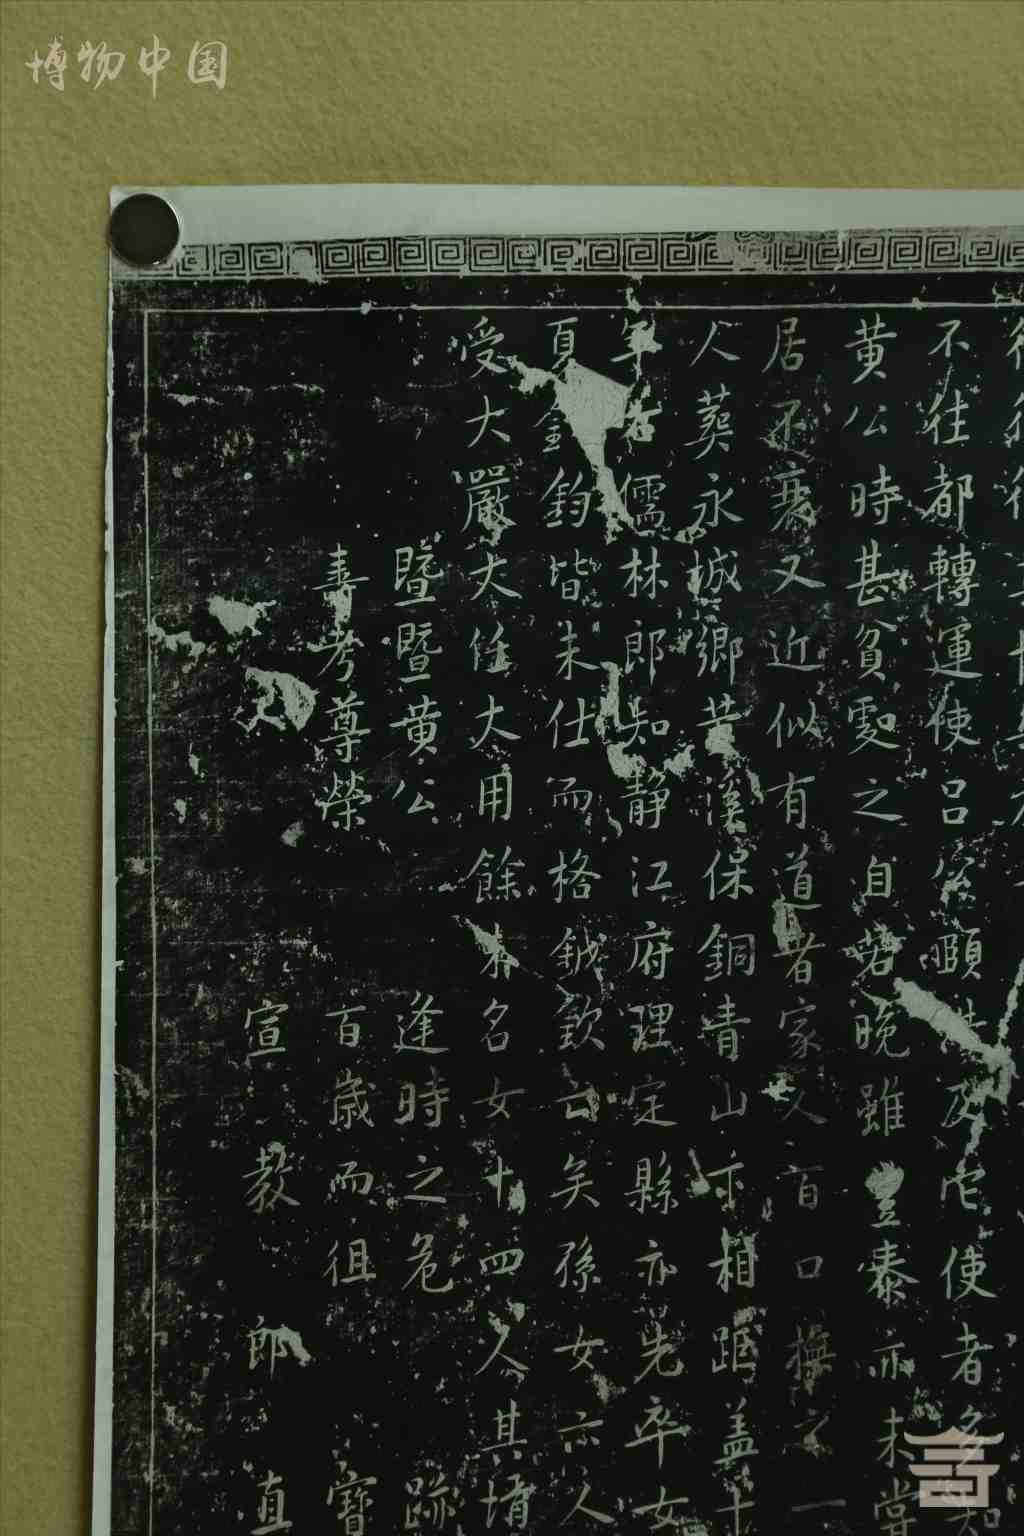 博物中国
不往都轉運使呂公頤浩及他使者多知
黄公時甚貧處之自若晚雖豐泰亦未嘗
居不衰又近似有道者家人百口撫之一
人葬永城鄉黄溪保銅青山亦相距蓋十
年 儒林郎知静江府理定縣亦先卒女
夏 鈞皆未仕而格鉞欽云矣孫女六人
受大嚴大任大用餘未名女十四人其壻
暨暨黄公 逢時之危 跡
壽考尊榮 百歲而徂 寶
宣教郎 直